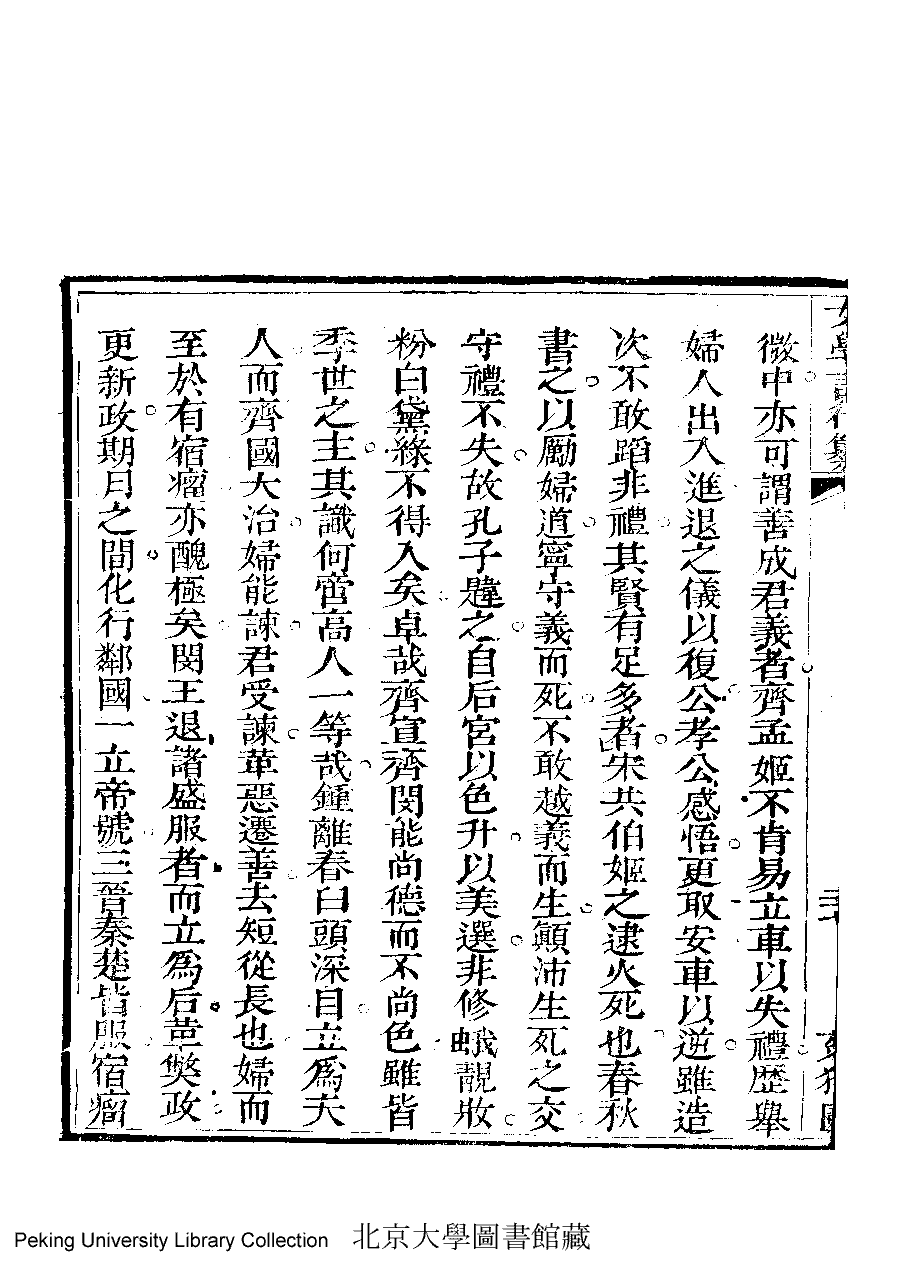 微中亦可謂善成君義者齊孟姬不肯易立車以失禮歷舉
婦人出入進退之儀以復公孝公感悟更取安車以逆雖造
次不敢蹈非禮其賢有足多者宋共伯姬之逮火死也春秋
書之以勵婦道寧守義而死不敢越義而生顛沛生死之交
守禮不失故孔子韙之自后宮以色升以美選非修蛾靚妝
粉白黛綠不得入矣卓哉齊宣齊閔能尚德而不尚色雖皆
季世之主其識何嘗高人一等哉鍾離春臼頭深目立為夫
人而齊國大治婦能諫君受諫革惡遷善去短從長也婦而
至於有宿瘤亦醜極矣閔王退諸盛服者而立為后革獘政
更新政期月之間化行鄰國一立帝號三晉秦楚皆服宿瘤
Peking University Library Collection 北京大學圖書館藏